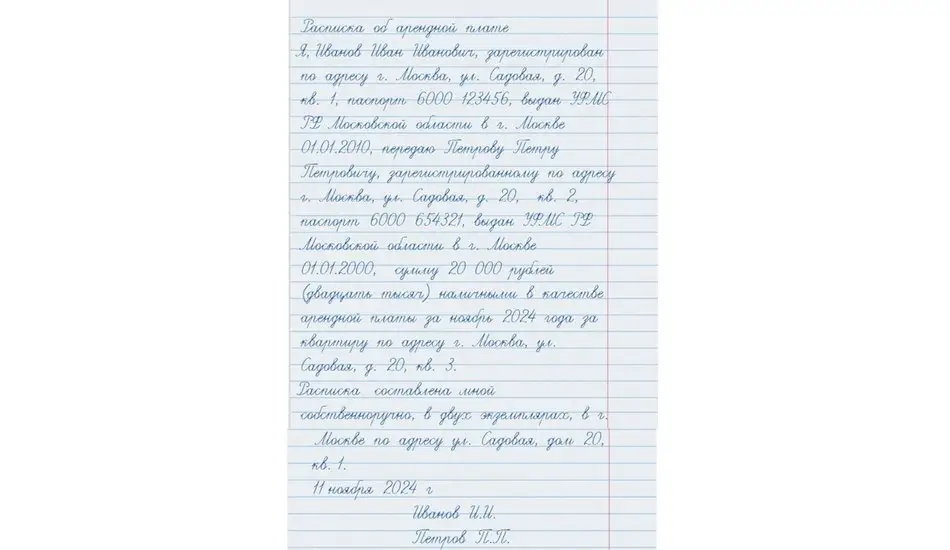 Расписка об арендной плате
Я, Иванов Иван Иванович, зарегистрирован
по адресу г. Москва, ул. Садовая, д. 20,
кв. 1, паспорт 6000 123456, выдан УФМС
РФ Московской области в г. Москве
01.01.2010, передаю Петрову Петру
Петровичу, зарегистрированному по адресу
г. Москва, ул. Садовая, д. 20, кв. 2,
паспорт 6000 654321, выдан УФМС РФ
Московской области в г. Москве
01.01.2000, сумму 20 000 рублей
(двадцать тысяч) наличными в качестве
арендной платы за ноябрь 2024 года за
квартиру по адресу г. Москва, ул.
Садовая, д. 20, кв. 3.
Расписка составлена мной
собственноручно, в двух экземплярах, в г.
Москве по адресу ул. Садовая, дом 20,
кв. 1.
11 ноября 2024 г
Иванов И.И.
Петров П.П.